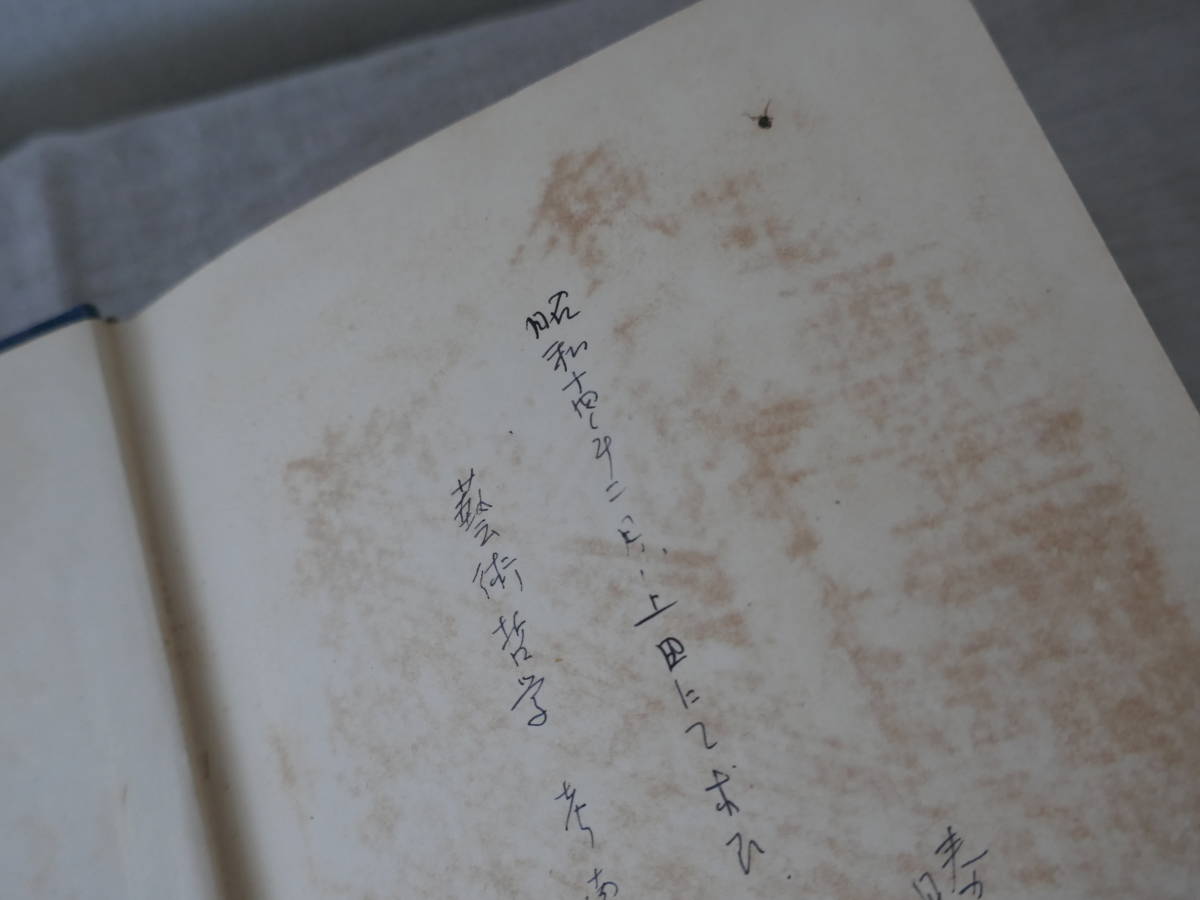 昭和十四年二月、上田にて求む.
藝術哲学